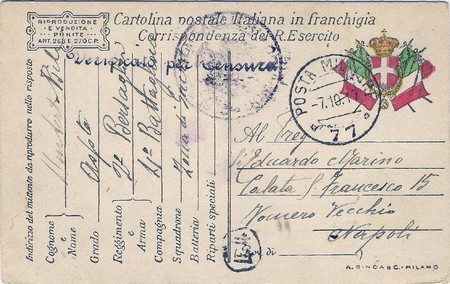 RIPRODUZIONE
E VENDITA
PROIBITE
ART. 268 E 270 C.P.
Cartolina postale Italiana in franchigia
Corrispondenza del R. Esercito
Verificato per Censura
POSTA MILITARE
-7.10.
77
Indirizzo del mittente da riprodurre nella risposta
Cognome
e
Nome
Grado
Reggimento
e
Arma
Bersaglieri
Compagnia
Battaglione
Squadrone
Zona di
Batteria
Riparti speciali
Al
Eduardo Marino
Calata S. Francesco 15
Vomero Vecchio
Napoli
di
A. BINDA & C. - MILANO